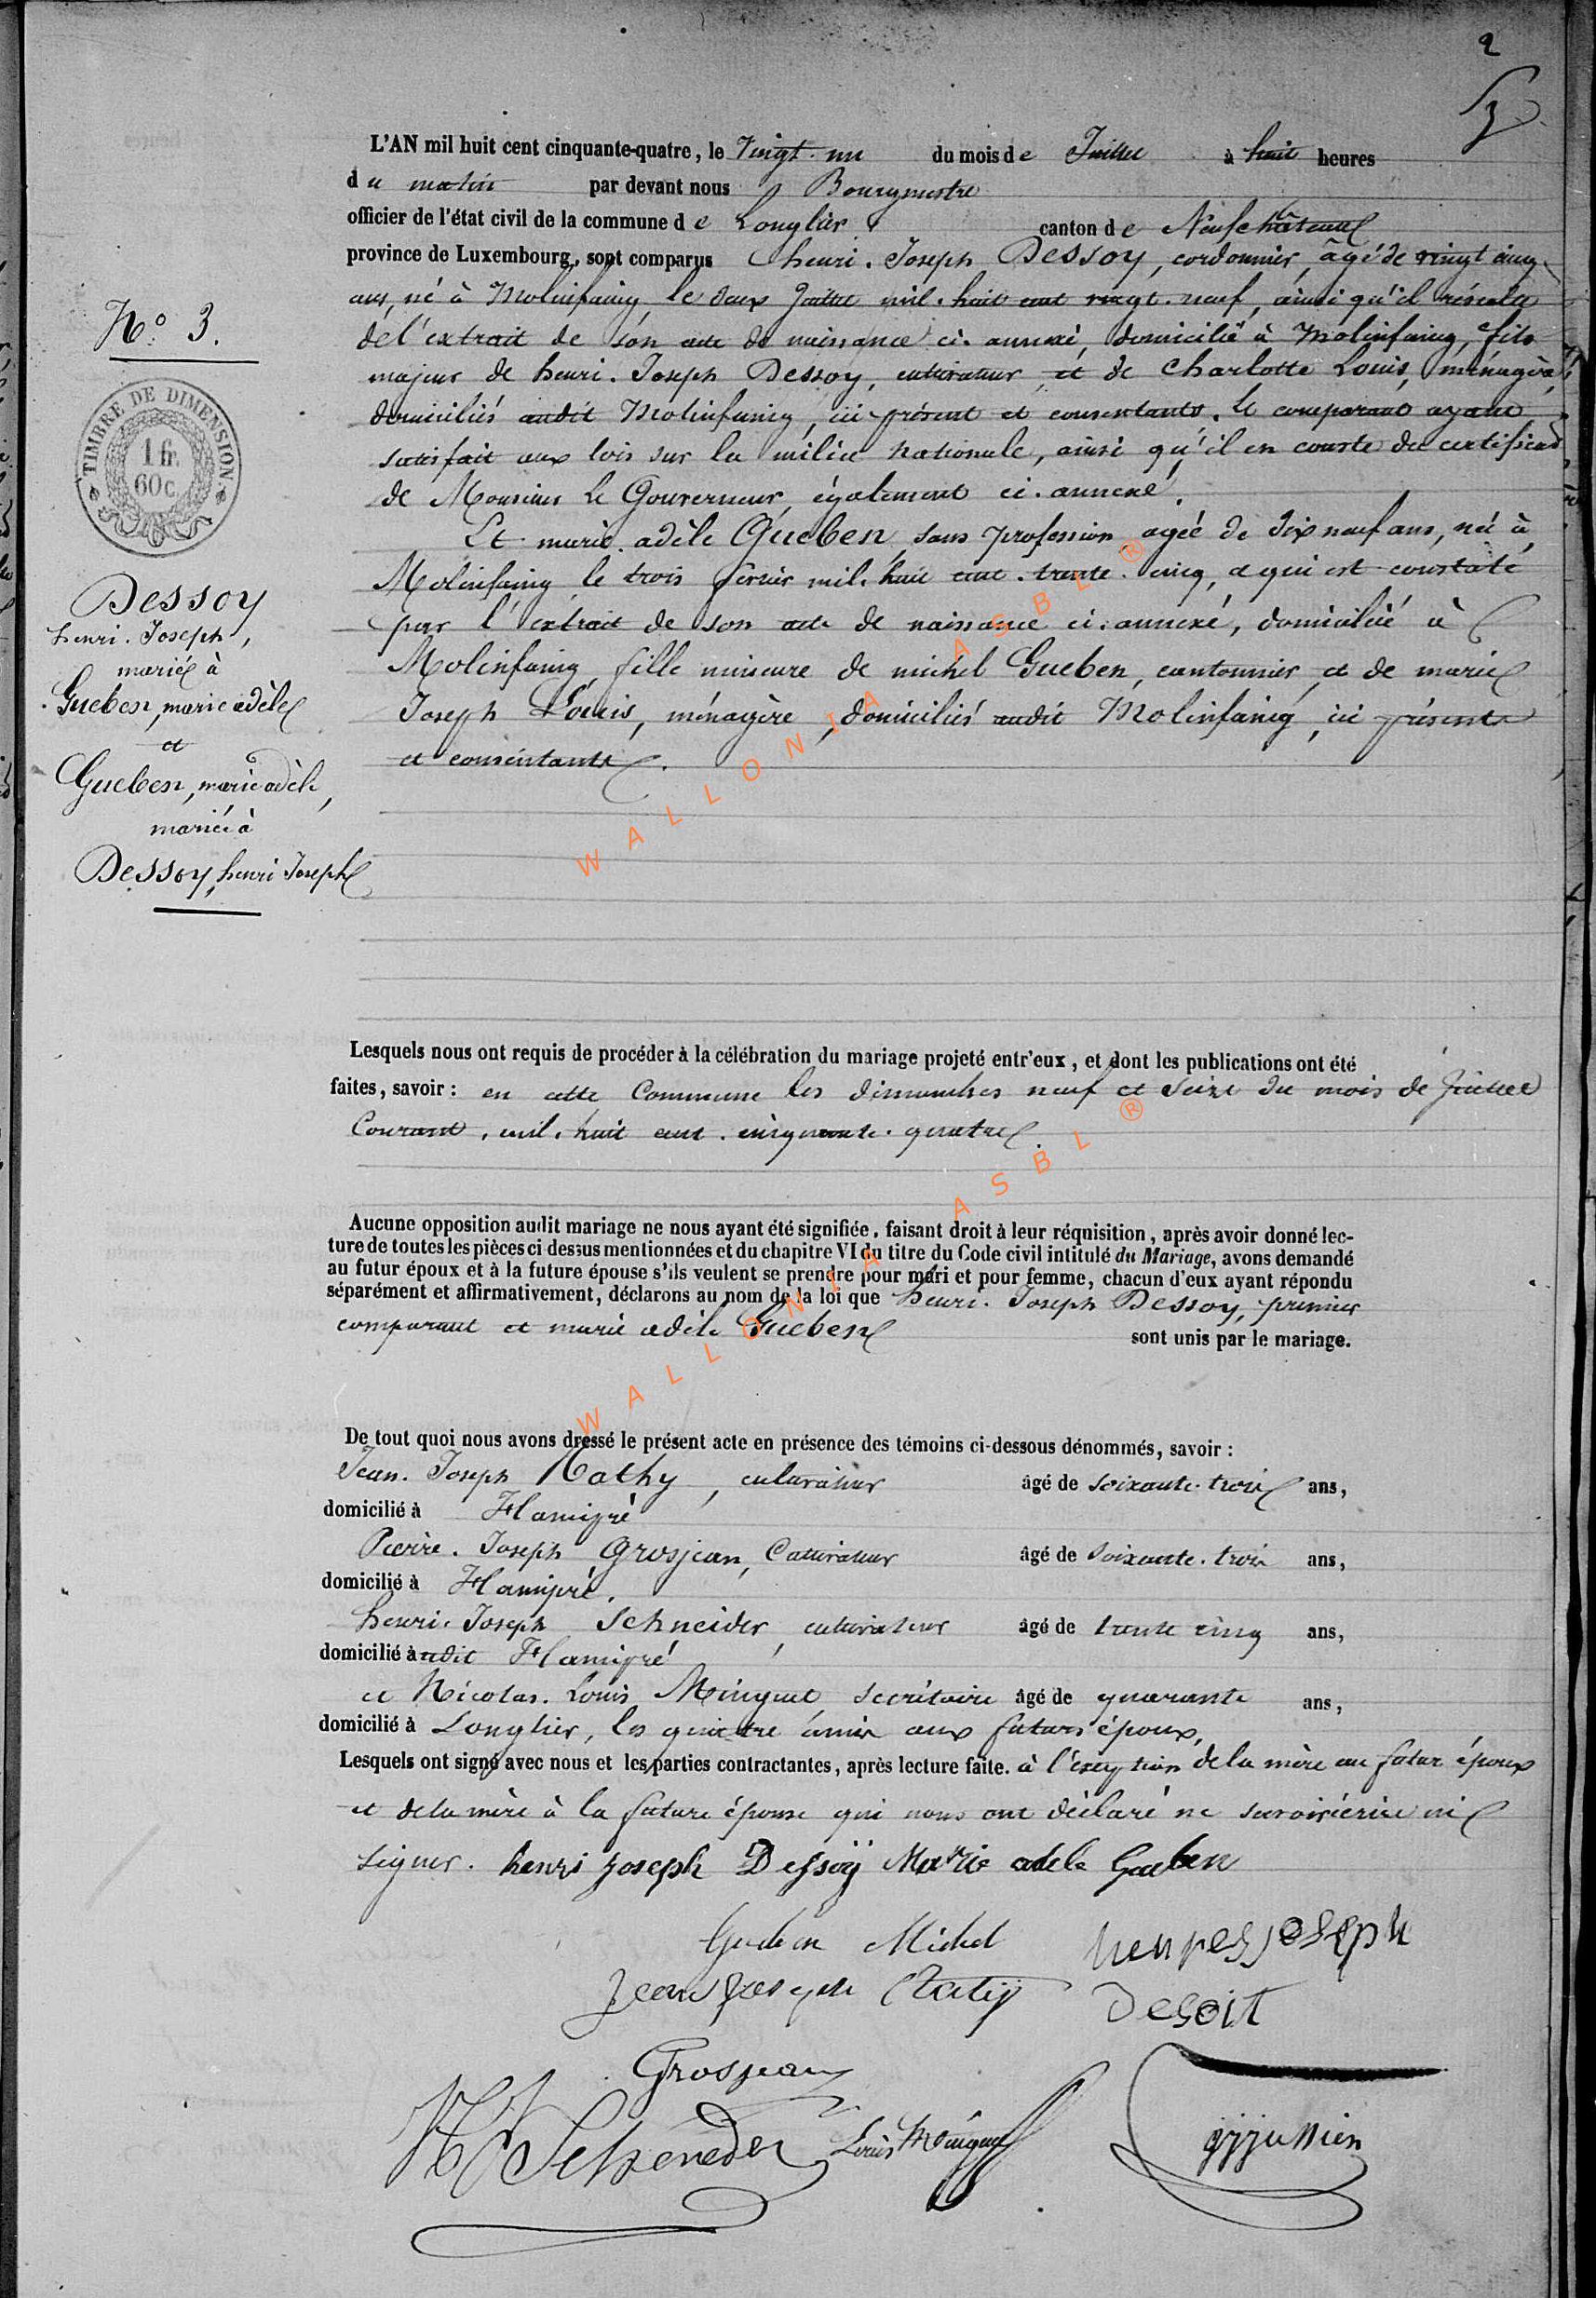 2
3
L'AN mil huit cent cinquante-quatre, le Vingt-un du mois de Juillet à huit heures
du matin par devant nous Bourgmestre
officier de l'état civil de la commune de Longlier canton de Neufchâteau
province de Luxembourg, sont comparus henri-Joseph Dessoy, cordonnier, âgé de vingt cinq
ans, né à Molinfaing, le deux Juillet mil-huit cent vingt-neuf, ainsi qu'il résulte
de l'extrait de son acte de naissance ci-annexé, domicilié à Molinfaing, fils
majeur de henri-Joseph Dessoy, cultivateur et de Charlotte Louis, ménagère,
domiciliés audit Molinfaing, ici présent et consentants, le comparant ayant
satisfait aux lois sur la milice Nationale, ainsi qu'il en conste du certificat
de Monsieur Le Gouverneur, également ci-annexé.
Et marie-adèle Gueben, sans profession, agée de dix neuf ans, née à
Molinfaing, le trois février mil-huit cent-trente-cinq, ce qui est constaté
par l'extrait de son acte de naissance ci-annexé, domiciliée à
Molinfaing, fille mineure de michel Gueben, cantonnier, et de marie
Joseph Louis, ménagère, domiciliés audit Molinfaing, ici présents
et consentants.
N° 3.
TIMBRE DE DIMENSION
1 fr.
60 c.
Dessoy
henri-Joseph,
marié à
Gueben, marie adèle
et
Gueben, marie adèle,
mariée à
Dessoy, henri Joseph
Lesquels nous ont requis de procéder à la célébration du mariage projeté entr'eux, et dont les publications ont été
faites, savoir : en cette Commune les dimanches neuf et Seize du mois de Juillet
Courant, mil-huit cent-cinquante-quatre.
Aucune opposition audit mariage ne nous ayant été signifiée, faisant droit à leur réquisition, après avoir donné lec-
ture de toutes les pièces ci dessus mentionnées et du chapitre VI du titre du Code civil intitulé du Mariage, avons demandé
au futur époux et à la future épouse s'ils veulent se prendre pour mari et pour femme, chacun d'eux ayant répondu
séparément et affirmativement, déclarons au nom de la loi que henri-Joseph Dessoy, premier
comparant et marie adèle Gueben sont unis par le mariage.
De tout quoi nous avons dressé le présent acte en présence des témoins ci-dessous dénommés, savoir :
Jean-Joseph Hathy, cultivateur âgé de soixante-trois ans,
domicilié à Hamipré
Pierre-Joseph Grosjean, Cultivateur âgé de soixante-trois ans,
domicilié à Hamipré.
henri-Joseph Schneider, cultivateur âgé de trente cinq ans,
domicilié àudit Hamipré
et Nicolas-Louis Minguet secrétaire âgé de quarante ans,
domicilié à Longlier, les quatre amis aux futurs époux,
Lesquels ont signé avec nous et les parties contractantes, après lecture faite. à l'exeption de la mère au futur époux
et de la mère à la future épouse qui nous ont déclaré ne savoir écrire ni
signer. henri Joseph Dessoÿ Marie adele Gueben
Gueben Michel henri Joseph
Jean Joseph Desoit
Grosjean
HJ Scheneder Louis Minguet
WALLONIA ASBL ®
WALLONIA ASBL ®